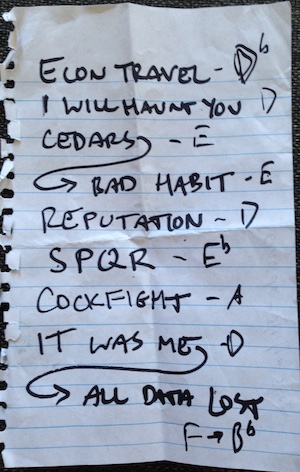 ECON TRAVEL - D♭
I WILL HAUNT YOU D
CEDARS - E
→ BAD HABIT - E
REPUTATION - D
SPQR - E♭
COCKFIGHT - A
IT WAS ME - D
→ ALL DATA LOST
F → B♭